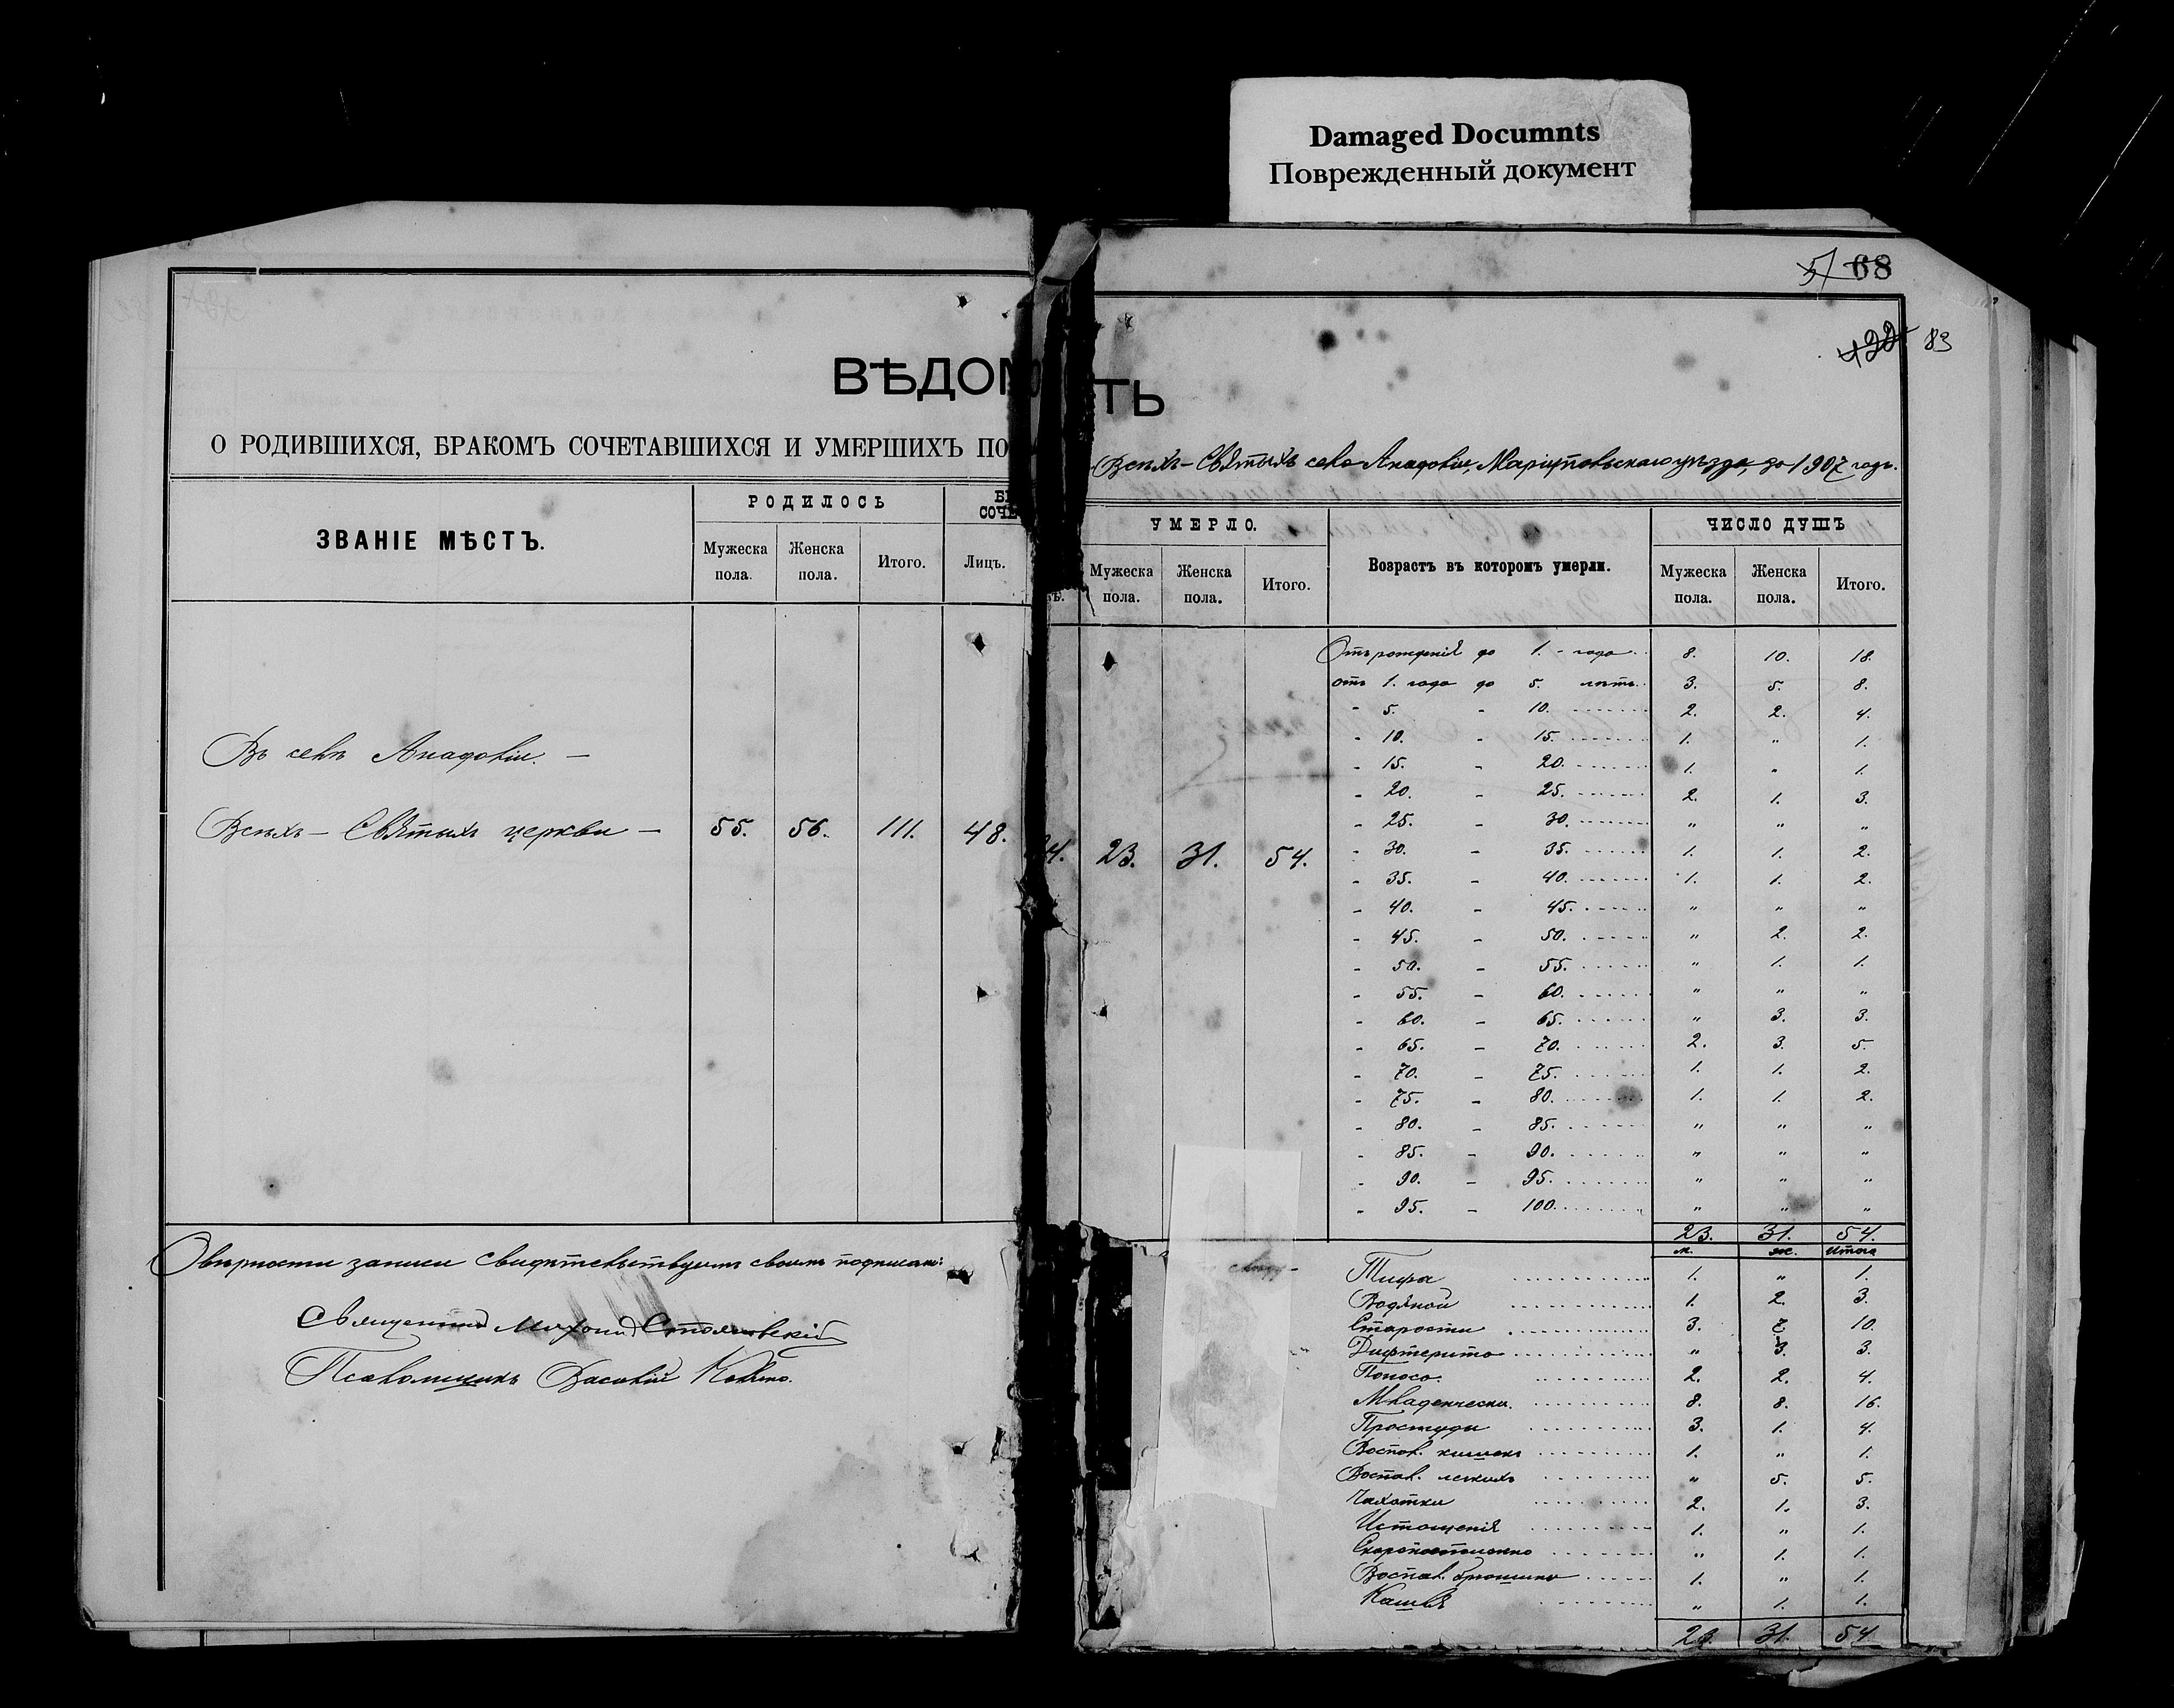 Damaged Documnts
Поврежденный документ
68
83
ВѢДОМ ТЬ
О РОДИВШИХСЯ, БРАКОМЪ СОЧЕТАВШИХСЯ И УМЕРШИХЪ ПО Всѣхъ-Святыхъ села Анадовіи, Маріупольскаго уѣзда, за 1907 годъ.
ЗВАНІЕ МѢСТЪ. РОДИЛОСЬ СОЧЕ УМЕРЛО. Возрастъ въ которомъ умерли. ЧИСЛО ДУШЪ
Мужеска пола. Женска пола. Итого. Лицъ. Мужеска пола. Женска пола. Итого. Мужеска пола. Женска пола. Итого.
Въ селѣ Анадовіи. —
Всѣхъ-Святыхъ церкви — 55. 56. 111. 48. 24. 23. 31. 54.
Отъ рожденія до 1. - года 8. 10. 18.
отъ 1. года до 5. лѣтъ 3. 5. 8.
- 5. - 10. 2. 2. 4.
- 10. - 15. 1. " 1.
- 15. - 20. 1. " 1.
- 20. - 25. 2. 1. 3.
- 25. - 30. " " "
- 30. - 35. 1. 1. 2.
- 35. - 40. 1. 1. 2.
- 40. - 45. " " "
- 45. - 50. " 2. 2.
- 50. - 55. " 1. 1.
- 55. - 60. " " "
- 60. - 65. " 3. 3.
- 65. - 70. 2. 3. 5.
- 70. - 75. 1. 1. 2.
- 75. - 80. 1. 1. 2.
- 80. - 85. " " "
- 85. - 90. " " "
- 90. - 95. " " "
- 95. - 100. " " "
23. 31. 54.
м. ж. Итого
О вѣрности записи свидѣтельствуемъ своимъ подписомъ:
Священникъ Стояновскій
Псаломщикъ Василій
Тифа 1. " 1.
Водяной 1. 2. 3.
Старости 3. 7. 10.
Дифтерита " 3. 3.
Поноса 2. 2. 4.
Младенчески. 8. 8. 16.
Простуды 3. 1. 4.
Воспал. кишекъ 1. " 1.
Воспал. легкихъ " 5. 5.
Чахотки 2. 1. 3.
Истощенія 1. " 1.
Скоропостижно " 1. 1.
Воспал. брюшины 1. " 1.
Кашля " 1. 1.
23. 31. 54.